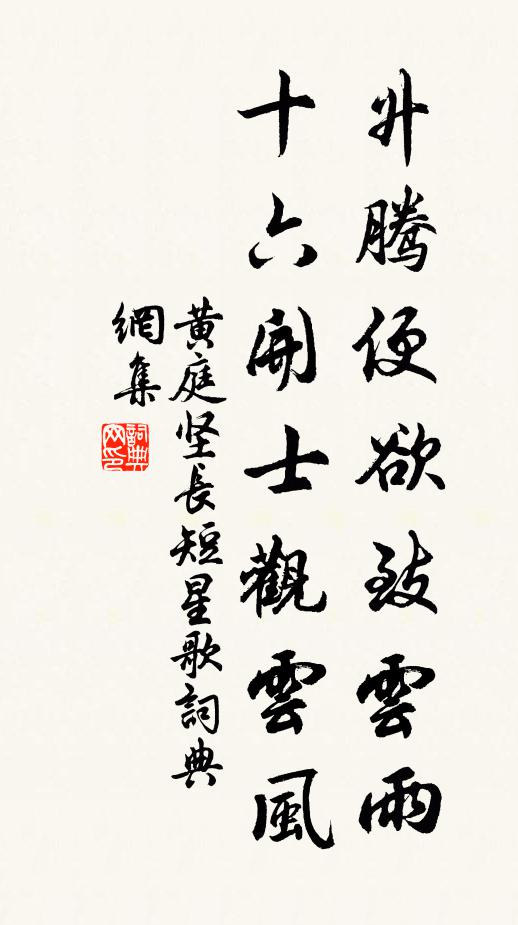 升騰便欲致雲雨
十六開士觀雲風
黄庭坚長短星歌詞典
網集
詞典網印